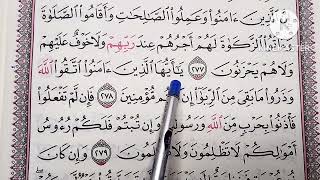 إِنَّ ٱلَّذِينَ ءَامَنُوا۟ وَعَمِلُوا۟ ٱلصَّٰلِحَٰتِ وَأَقَامُوا۟ ٱلصَّلَوٰةَ
وَءَاتَوُا۟ ٱلزَّكَوٰةَ لَهُمْ أَجْرُهُمْ عِندَ رَبِّهِمْ وَلَا خَوْفٌ عَلَيْهِمْ
وَلَا هُمْ يَحْزَنُونَ ٢٧٧ يَٰٓأَيُّهَا ٱلَّذِينَ ءَامَنُوا۟ ٱتَّقُوا۟ ٱللَّهَ
وَذَرُوا۟ مَا بَقِىَ مِنَ ٱلرِّبَوٰٓا۟ إِن كُنتُم مُّؤْمِنِينَ ٢٧٨ فَإِن لَّمْ تَفْعَلُوا۟
فَأْذَنُوا۟ بِحَرْبٍ مِّنَ ٱللَّهِ وَرَسُولِهِۦ وَإِن تُبْتُمْ فَلَكُمْ رُءُوسُ
أَمْوَٰلِكُمْ لَا تَظْلِمُونَ وَلَا تُظْلَمُونَ ٢٧٩ وَإِن كَانَ